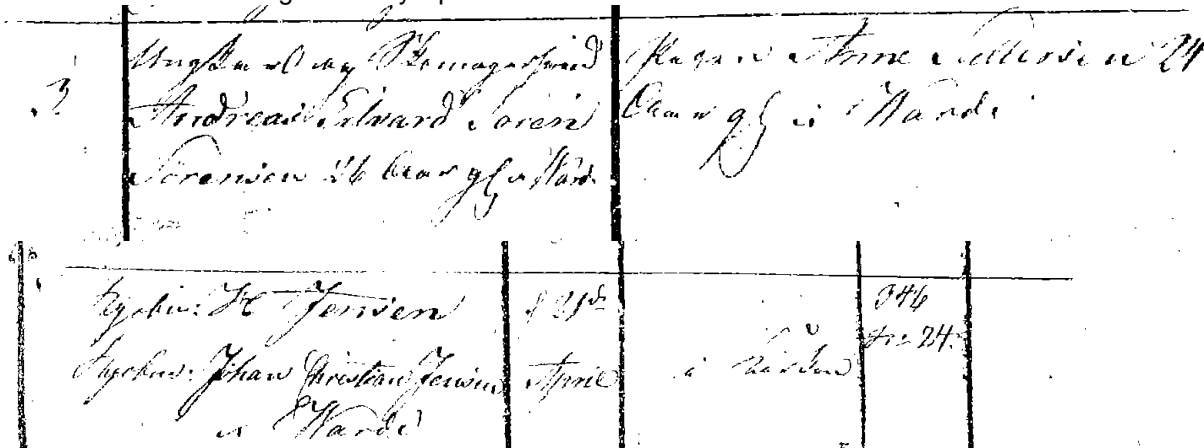 3
Ungkarl og Skomagersvend
Andreas Edvard Sören
Sörensen 26 Aar gl i Warde
Pigen Anne 24
Aar gl i Warde
H Jensen
Johan Christian Jensen
i Warde
d 21de
April
i Kirken
346
24